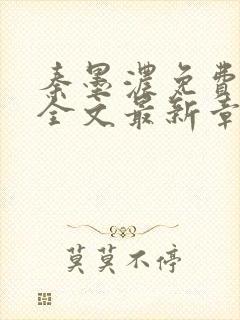 秦墨浓免费
全文最新章
莫莫不停